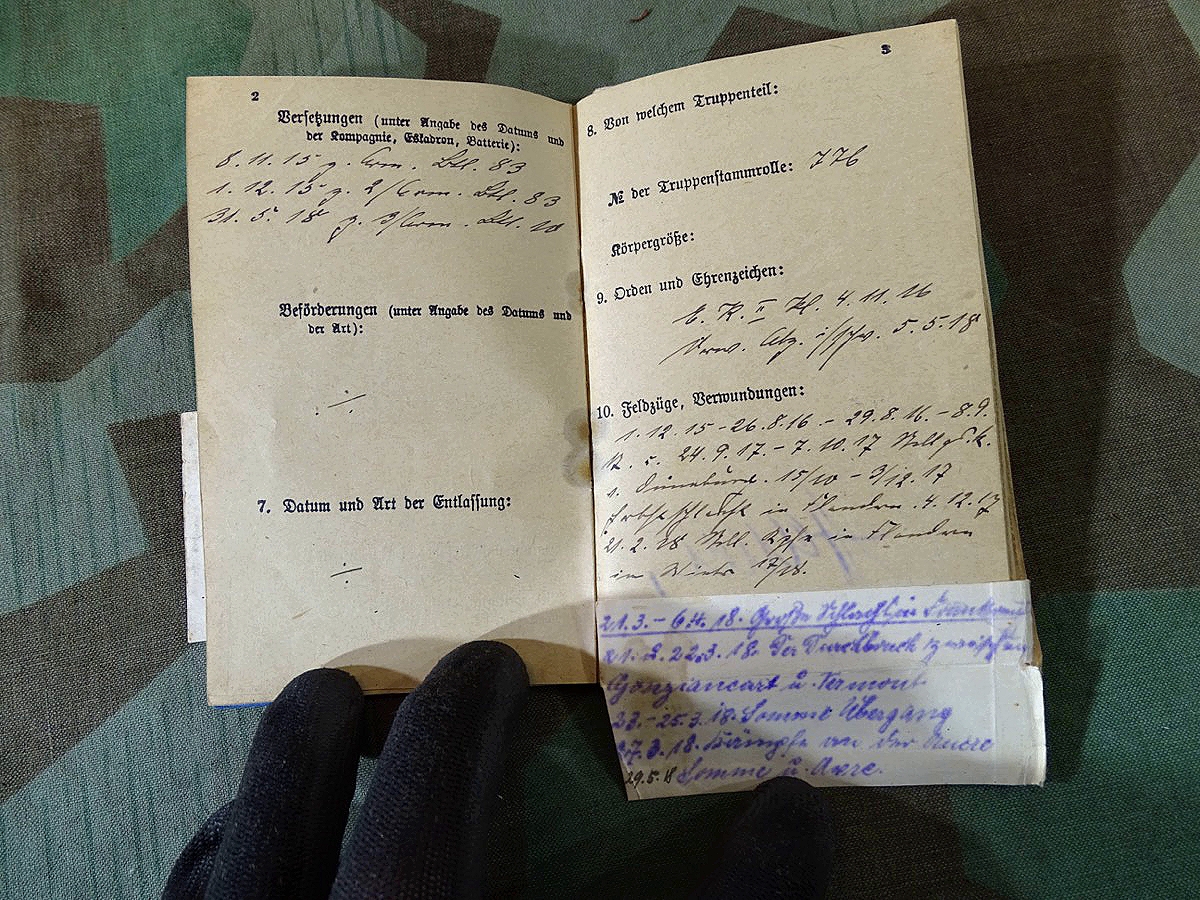 2
Versetzungen (unter Angabe des Datums und
der Kompagnie, Eskadron, Batterie):
8. 11. 15 z. Arm. Btl. 83
1. 12. 15 z. 2/Arm. Btl. 83
31. 5. 18 z. 3/Arm. Btl. 10
Beförderungen (unter Angabe des Datums und
der Art):
÷
7. Datum und Art der Entlassung:
÷
3
8. Von welchem Truppenteil:
№ der Truppenstammrolle: 776
Körpergröße:
9. Orden und Ehrenzeichen:
E. K. II Kl. 4. 11. 16
Verw. Abz. i/schw. 5. 5. 18
10. Feldzüge, Verwundungen:
1. 12. 15 - 26. 8. 16. - 29. 8. 16. - 8. 9.
24. 9. 17. - 7. 10. 17
v. Dünaburg. 15/10 - 3/12. 17
in Flandern. 4. 12. 17
21. 2. 18 Stell. Kpfe in Flandern
im Winter 17/18.
21.3. - 6.4. 18. Große Schlacht in Frankreich
21. u. 22.3. 18. Der Durchbruch zwischen
Gonziancart u. Vermont
23.-25.3. 18. Somme Übergang
27.3. 18. Kämpfe an der Ancre
29.5.18 Somme u. Avre.